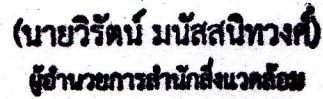 (นายวิรัตน์ มนัสสนิทวงศ์)
ผู้อำนวยการสำนักสิ่งแวดล้อม